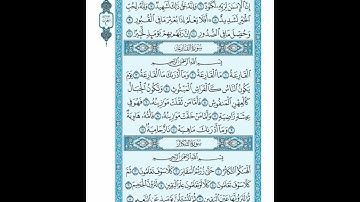 إِنَّ الْإِنسَانَ لِرَبِّهِ لَكَنُودٌ ۝ وَإِنَّهُ عَلَىٰ ذَٰلِكَ لَشَهِيدٌ ۝ وَإِنَّهُ لِحُبِّ
الْخَيْرِ لَشَدِيدٌ ۝ أَفَلَا يَعْلَمُ إِذَا بُعْثِرَ مَا فِي الْقُبُورِ ۝
وَحُصِّلَ مَا فِي الصُّدُورِ ۝ إِنَّ رَبَّهُم بِهِمْ يَوْمَئِذٍ لَّخَبِيرٌ ۝
سُورَةُ القَارِعَةِ
بِسْمِ اللَّهِ الرَّحْمَٰنِ الرَّحِيمِ
الْقَارِعَةُ ۝ مَا الْقَارِعَةُ ۝ وَمَا أَدْرَاكَ مَا الْقَارِعَةُ ۝ يَوْمَ
يَكُونُ النَّاسُ كَالْفَرَاشِ الْمَبْثُوثِ ۝ وَتَكُونُ الْجِبَالُ
كَالْعِهْنِ الْمَنفُوشِ ۝ فَأَمَّا مَن ثَقُلَتْ مَوَازِينُهُ ۝ فَهُوَ فِي
عِيشَةٍ رَّاضِيَةٍ ۝ وَأَمَّا مَنْ خَفَّتْ مَوَازِينُهُ ۝ فَأُمُّهُ هَاوِيَةٌ
۝ وَمَا أَدْرَاكَ مَا هِيَهْ ۝ نَارٌ حَامِيَةٌ ۝
سُورَةُ التَّكَاثُرِ
بِسْمِ اللَّهِ الرَّحْمَٰنِ الرَّحِيمِ
أَلْهَاكُمُ التَّكَاثُرُ ۝ حَتَّىٰ زُرْتُمُ الْمَقَابِرَ ۝ كَلَّا سَوْفَ تَعْلَمُونَ ۝
ثُمَّ كَلَّا سَوْفَ تَعْلَمُونَ ۝ كَلَّا لَوْ تَعْلَمُونَ عِلْمَ الْيَقِينِ ۝ لَتَرَوُنَّ الْجَحِيمَ